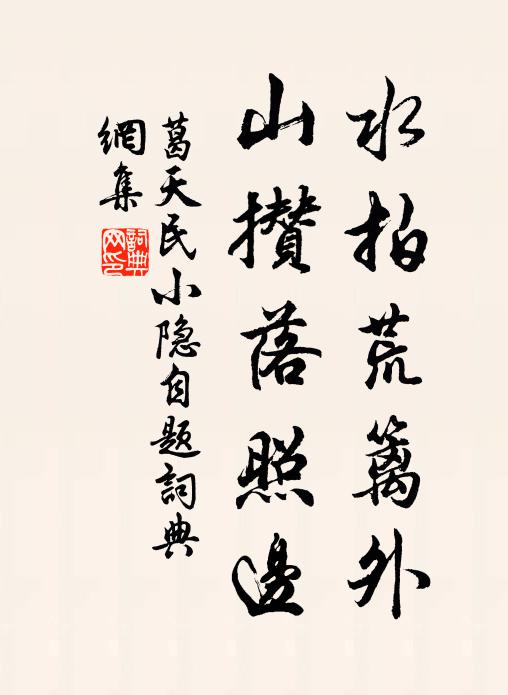 水拍荒籬外
山攢落照邊
葛天民小隐自題詞典
網集
詞典
网印